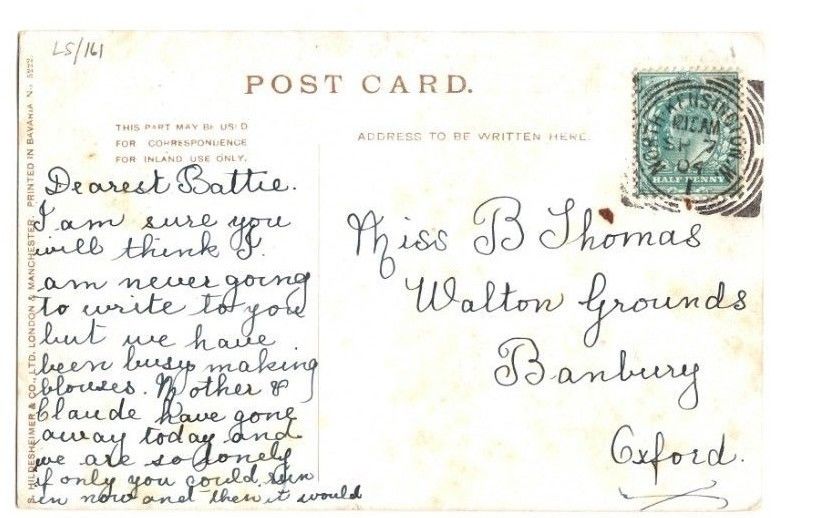 LS/161
POST CARD.
THIS PART MAY BE USED
FOR CORRESPONDENCE
FOR INLAND USE ONLY.
ADDRESS TO BE WRITTEN HERE.
NORTH KENSINGTON. W
12.15 AM
SP 7
04
1
HALF PENNY
Dearest Battie.
I am sure you
will think I
am never going
to write to you
but we have
been busy making
blouses. Mother &
Claude have gone
away today and
we are so lonely
if only you could run
in now and then it would
Miss B Thomas
Walton Grounds
Banbury
Oxford.
S. HILDESHEIMER & CO., LTD. LONDON & MANCHESTER. PRINTED IN BAVARIA No. 5222.